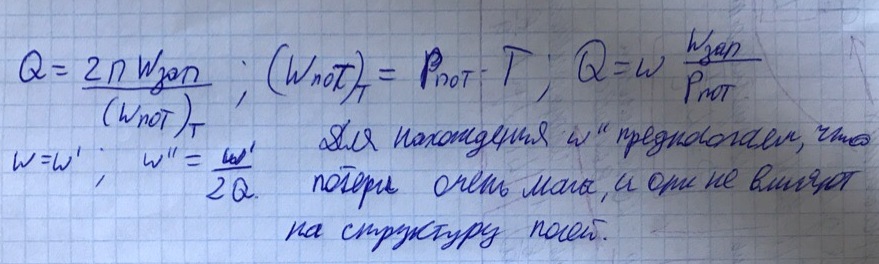 Q = 2π Wзап / (Wпот)T ; (Wпот)T = Pпот · T ; Q = ω Wзап / Pпот
ω = ω' ; ω'' = ω' / 2Q. Для нахождения ω'' предполагаем, что
потери очень малы, и они не влияют
на структуру полей.